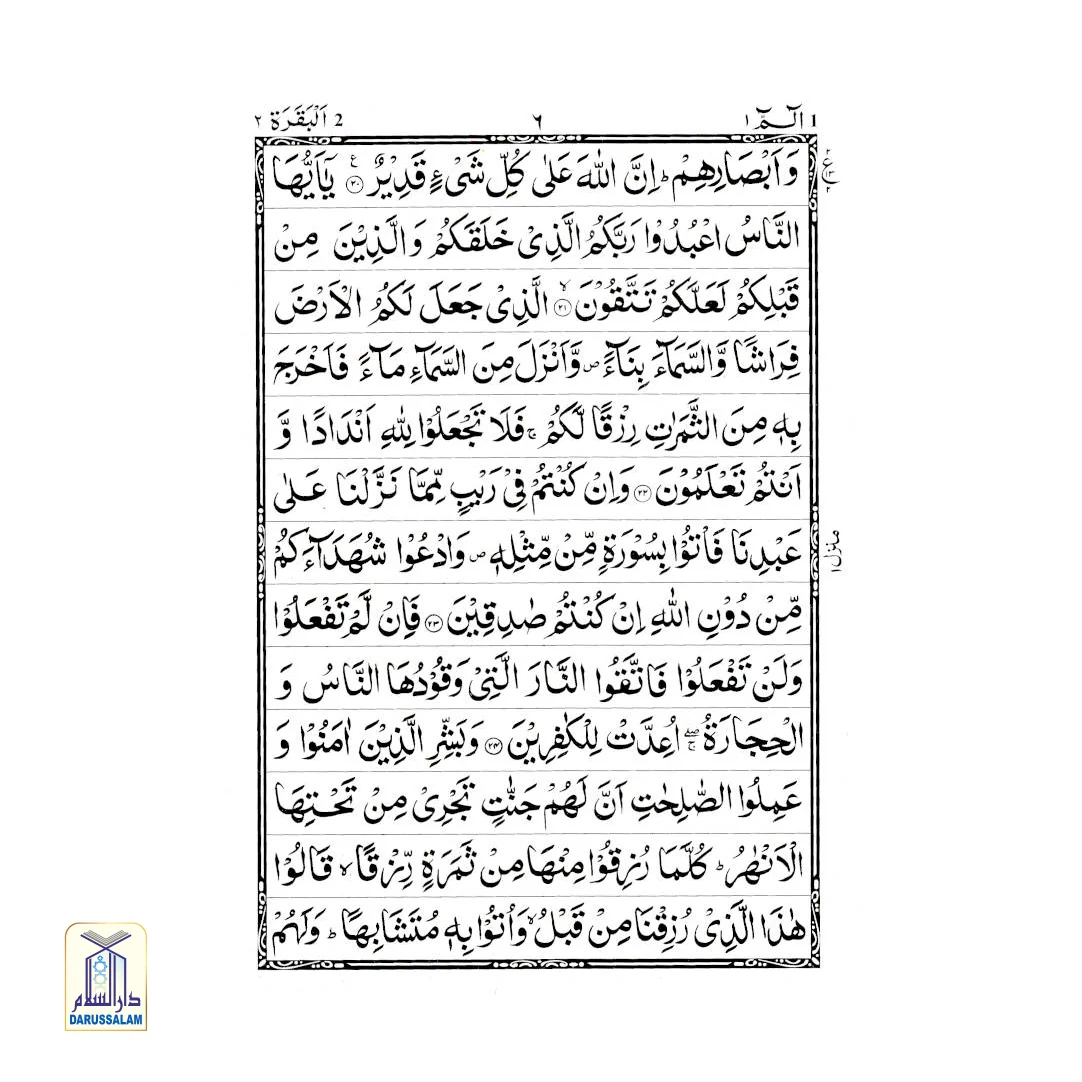 1 الٓـمّٓ ١ ٦ 2 اَلْبَقَرَة ٢
وَاَبْصَارِهِمْ ؕ اِنَّ اللّٰهَ عَلٰى كُلِّ شَیْءٍ قَدِیْرٌ ۟۠ ٢٠ یٰۤاَیُّهَا
النَّاسُ اعْبُدُوْا رَبَّكُمُ الَّذِیْ خَلَقَكُمْ وَالَّذِیْنَ مِنْ
قَبْلِكُمْ لَعَلَّكُمْ تَتَّقُوْنَ ۙ ٢١ الَّذِیْ جَعَلَ لَكُمُ الْاَرْضَ
فِرَاشًا وَّالسَّمَآءَ بِنَآءً ۪ وَّاَنْزَلَ مِنَ السَّمَآءِ مَآءً فَاَخْرَجَ
بِهٖ مِنَ الثَّمَرٰتِ رِزْقًا لَّكُمْ ۚ فَلَا تَجْعَلُوْا لِلّٰهِ اَنْدَادًا وَّ
اَنْتُمْ تَعْلَمُوْنَ ٢٢ وَاِنْ كُنْتُمْ فِیْ رَیْبٍ مِّمَّا نَزَّلْنَا عَلٰى
عَبْدِنَا فَاْتُوْا بِسُوْرَةٍ مِّنْ مِّثْلِهٖ ۪ وَادْعُوْا شُهَدَآءَكُمْ
مِّنْ دُوْنِ اللّٰهِ اِنْ كُنْتُمْ صٰدِقِیْنَ ٢٣ فَاِنْ لَّمْ تَفْعَلُوْا
وَلَنْ تَفْعَلُوْا فَاتَّقُوا النَّارَ الَّتِیْ وَقُوْدُهَا النَّاسُ وَ
الْحِجَارَةُ ۖۚ اُعِدَّتْ لِلْكٰفِرِیْنَ ٢٤ وَبَشِّرِ الَّذِیْنَ اٰمَنُوْا وَ
عَمِلُوا الصّٰلِحٰتِ اَنَّ لَهُمْ جَنّٰتٍ تَجْرِیْ مِنْ تَحْتِهَا
الْاَنْهٰرُ ؕ كُلَّمَا رُزِقُوْا مِنْهَا مِنْ ثَمَرَةٍ رِّزْقًا ۙ قَالُوْا
هٰذَا الَّذِیْ رُزِقْنَا مِنْ قَبْلُ ۙ وَاُتُوْا بِهٖ مُتَشَابِهًا ؕ وَلَهُمْ
منزل ١
دار السلام
DARUSSALAM